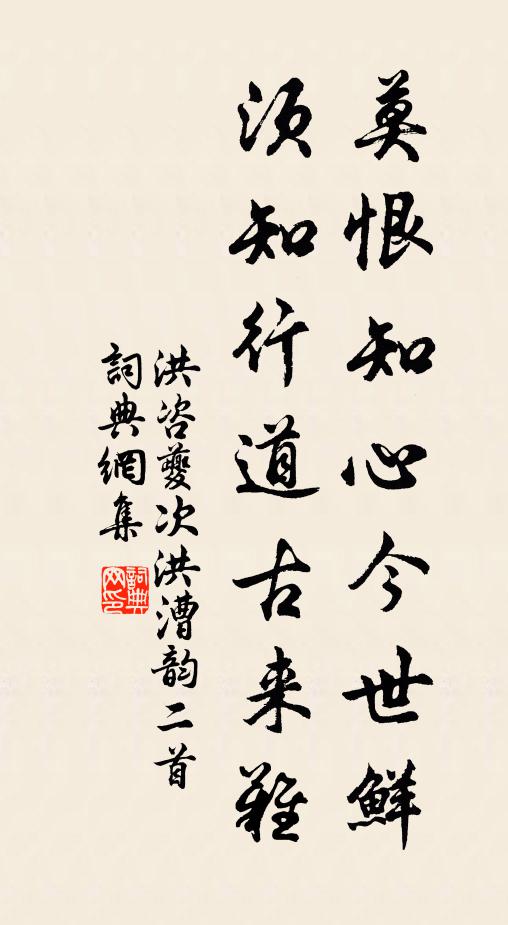 莫恨知心今世鮮
須知行道古来難
洪咨夔次洪漕韵二首
詞典網集
詞典网印